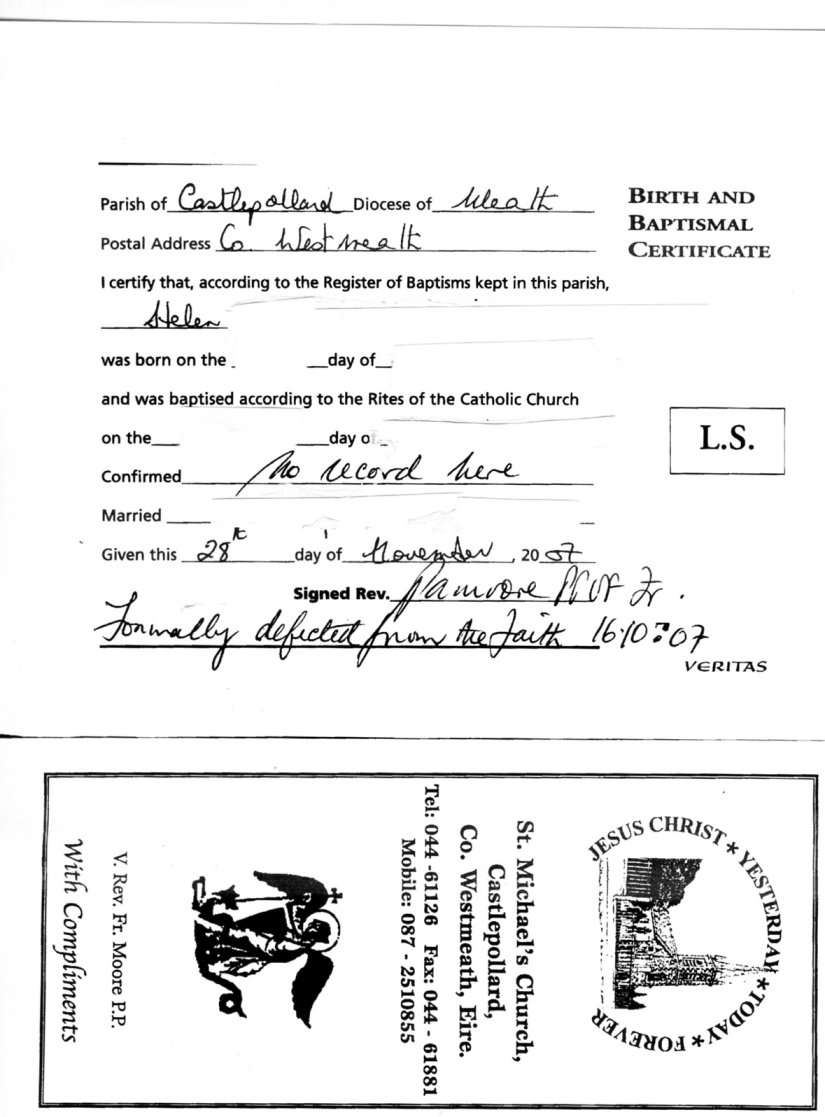 Parish of Castlepollard Diocese of Meath
Postal Address Co. Westmeath
BIRTH AND
BAPTISMAL
CERTIFICATE
I certify that, according to the Register of Baptisms kept in this parish,
Helen
was born on the day of
and was baptised according to the Rites of the Catholic Church
on the day o
L.S.
Confirmed No record here
Married
Given this 28th day of November, 20 07
Signed Rev. PP VF
Formally defected from the Faith 16·10·07
VERITAS
JESUS CHRIST * YESTERDAY * TODAY * FOREVER
St. Michael's Church,
Castlepollard,
Co. Westmeath, Eire.
Tel: 044 -61126 Fax: 044 - 61881
Mobile: 087 - 2510855
V. Rev. Fr. Moore P.P.
With Compliments